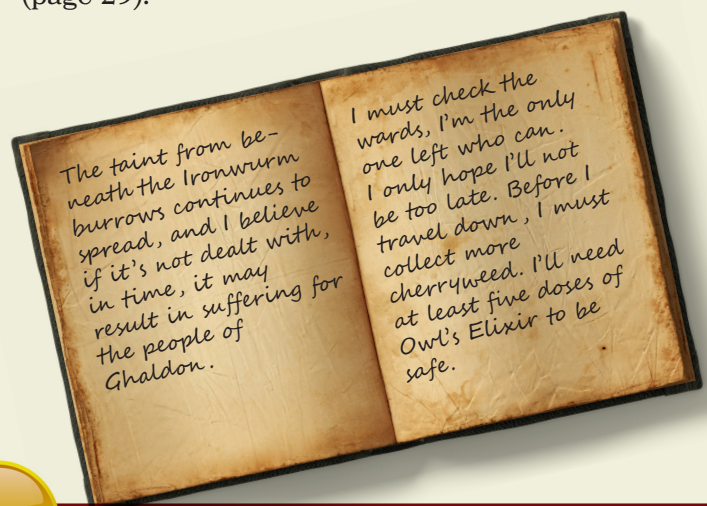 (page 29).
The taint from be-
neath the Ironwurm
burrows continues to
spread, and I believe
if it's not dealt with,
in time, it may
result in suffering for
the people of
Ghaldon.
I must check the
wards, I'm the only
one left who can.
I only hope I'll not
be too late. Before I
travel down, I must
collect more
cherryweed. I'll need
at least five doses of
Owl's Elixir to be
safe.